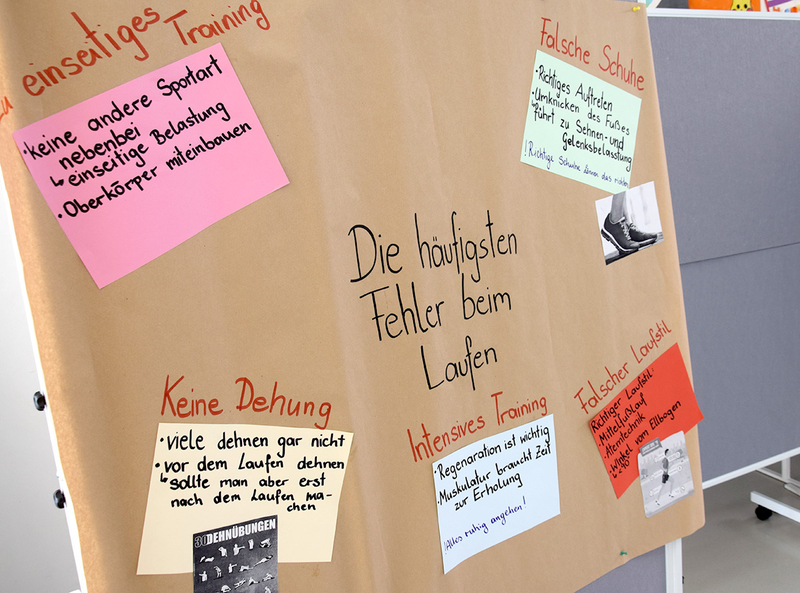 zu einseitiges Training
• keine andere Sportart
nebenbei
↳ einseitige Belastung
• Oberkörper miteinbauen
Falsche Schuhe
• Richtiges Auftreten
• Umknicken des Fußes
↳ führt zu Sehnen- und
Gelenksbelasstung
! Richtige Schuhe können das
Die häufigsten
Fehler beim
Laufen
Keine Dehung
• viele dehnen gar nicht
• vor dem Laufen dehnen
↳ sollte man aber erst
nach dem Laufen ma-
chen
30 DEHNÜBUNGEN
Intensives Training
• Regenaration ist wichtig
• Muskulatur braucht Zeit
zur Erholung
! Alles ruhig angehen!
Falscher Laufstil
Richtiger Laufstil:
• Mittelfußlauf
• Atemtechnik
• Winkel vom Ellbogen